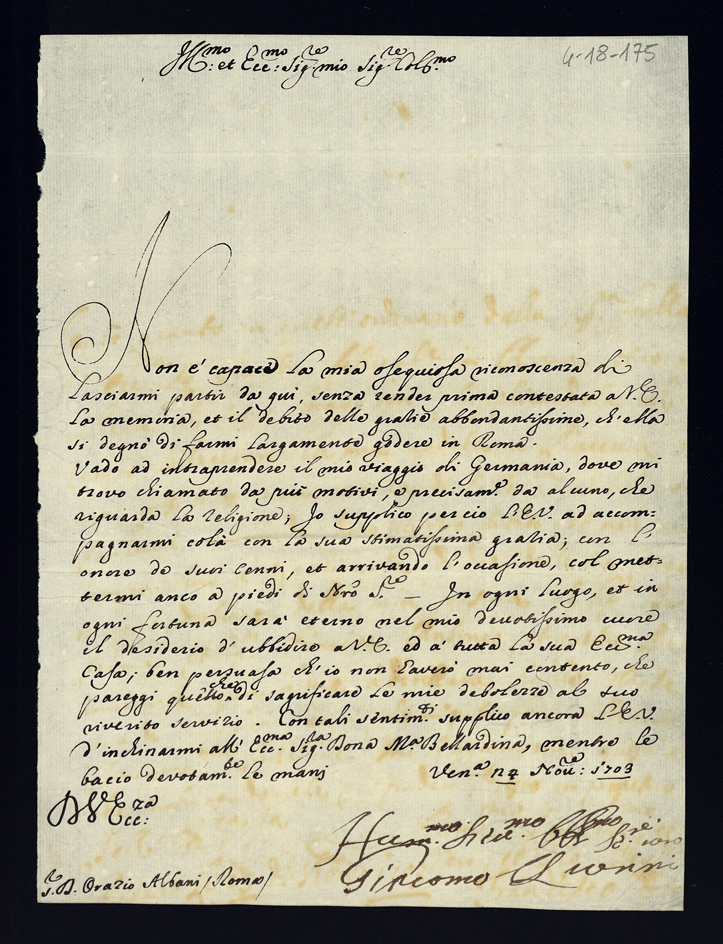 Ill:mo et Ecc:mo Sig:re mio Sig:re Col:mo
4-18-175
Non é capace la mia osequiosa riconoscenza di
lasciarmi partir da qui, senza render prima contestata a V.E.
la memoria, et il debito delle gratie abbondantissime, ch'ella
si degnò di farmi largamente godere in Roma.
Vado ad intraprendere il mio viaggio di Germania, dove mi
trovo chiamato da più motivi, e precisam.e da alcuno, che
riguarda la religione; Io supplico percio l'E.V. ad accom-
pagnarmi colà con la sua stimatissima gratia; con l'
onore de suoi Cenni, et arrivando l'occasione, col met-
termi anco a piedi di Nrõ S.re — In ogni luogo, et in
ogni fortuna sarà eterno nel mio devotissimo cuore
il desiderio d'ubbidire a V.E. ed a' tutta la sua Ecc:ma
Casa; ben persuasa ch'io non haverò mai contento, che
pareggi quello che di sagrificare le mie debolezze al suo
riverito servizio. Con tali sentim.ti supplico ancora l'E.V.
d'inchinarmi all' Ecc:ma Sig:ra Dona M.a Bernardina, mentre le
bacio devotam.te le mani Ven.a 24 Nov:re: 1703
D V Ecc:za
Hum.mo Ser.mo
Giacomo Querini
S.r D. Orazio Albani /Roma/